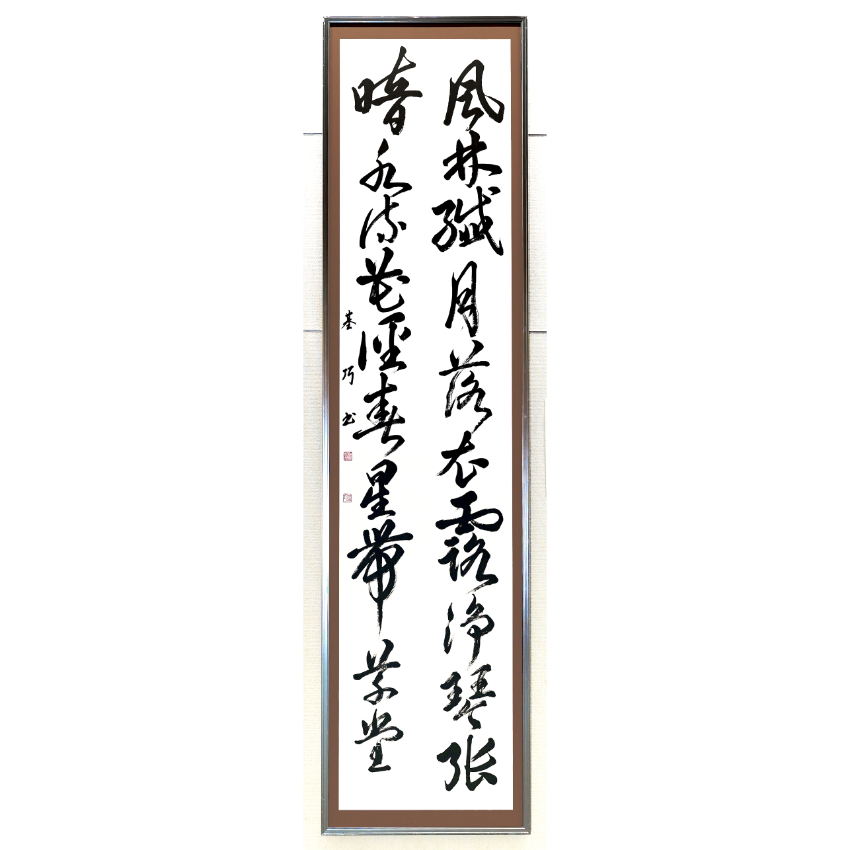 風林纖月落衣露淨琴張
暗水流花徑春星帶草堂
基巧書